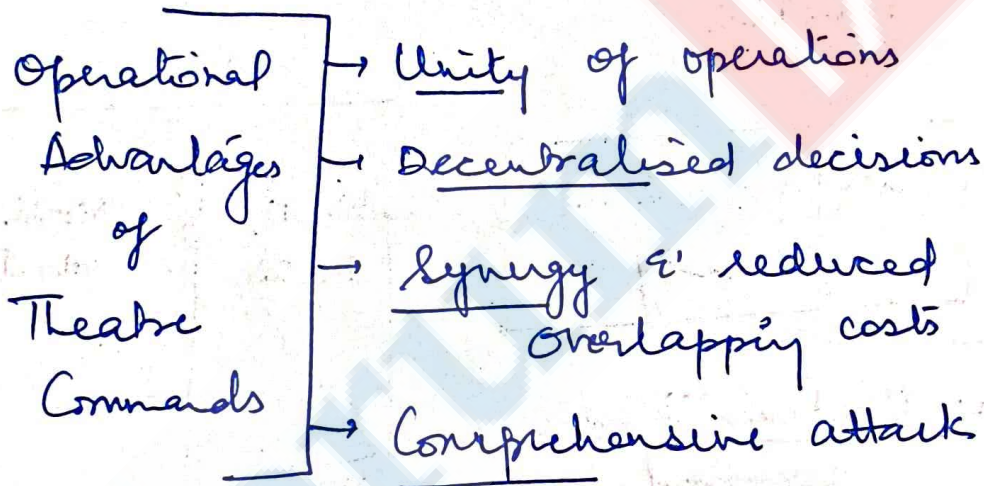 Operational
Advantages
of
Theatre
Commands
→ Unity of operations
→ Decentralised decisions
→ Synergy & reduced
overlapping costs
→ Comprehensive attack